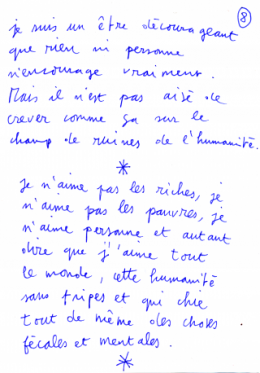 8
je suis un être décourageant
que rien ni personne
n'encourage vraiment.
Mais il n'est pas aisé de
crever comme ça sur le
champ de ruines de l'humanité.
*
Je n'aime pas les riches, je
n'aime pas les pauvres, je
n'aime personne et autant
dire que j'aime tout
le monde, cette humanité
sans tripes et qui chie
tout de même des choses
fécales et mentales.
*